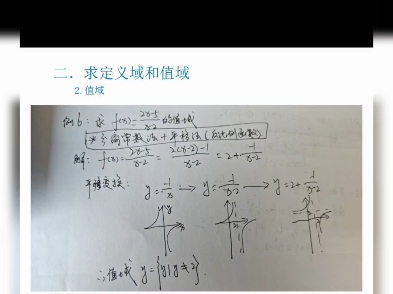 二．求定义域和值域
2.值域
例6：求 f(x)=2x-5/x-2 的值域
*分离常数法+平移法(反比例函数)
解：f(x)=2x-5/x-2=2(x-2)-1/x-2=2+-1/x-2
平移变换：y=-1/x→y=-1/x-2→y=2+-1/x-2
∴值域 y={y|y≠2}